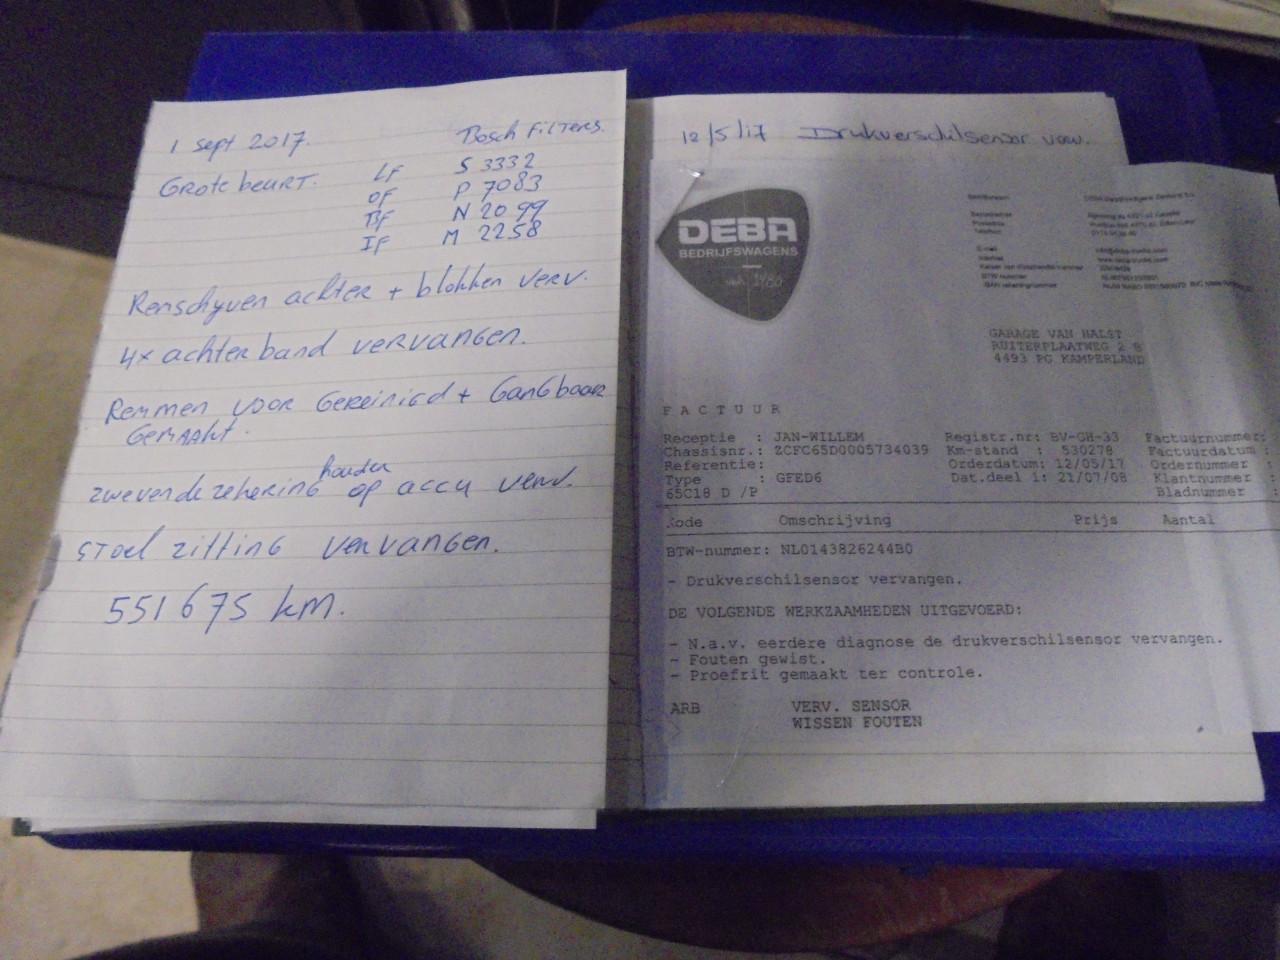 1 sept 2017.
Bosch Filters.
Grote beurt.
LF S 3332
OF P 7083
BF N 2099
IF M 2258
Remschyven achter + blokken verv.
4x achterband vervangen.
Remmen voor Gereinigd + Gangbaar
Gemaakt.
zwevende zekering houder op accu verv.
stoel zitting vervangen.
551675 km.
12/5/17 Drukverschilsensor verv.
DEBA
BEDRIJFSWAGENS
GARAGE VAN HALST
RUITERPLAATWEG 2 B
4493 PG KAMPERLAND
FACTUUR
Receptie : JAN-WILLEM Registr.nr: BV-GH-33 Factuurnummer:
Chassisnr.: ZCFC65D0005734039 Km-stand : 530278 Factuurdatum :
Referentie: Orderdatum: 12/05/17 Ordernummer :
Type : GFED6 Dat.deel 1: 21/07/08 Klantnummer :
65C18 D /P Bladnummer :
Kode Omschrijving Prijs Aantal
BTW-nummer: NL0143826244B0
- Drukverschilsensor vervangen.
DE VOLGENDE WERKZAAMHEDEN UITGEVOERD:
- N.a.v. eerdere diagnose de drukverschilsensor vervangen.
- Fouten gewist.
- Proefrit gemaakt ter controle.
ARB VERV. SENSOR
WISSEN FOUTEN